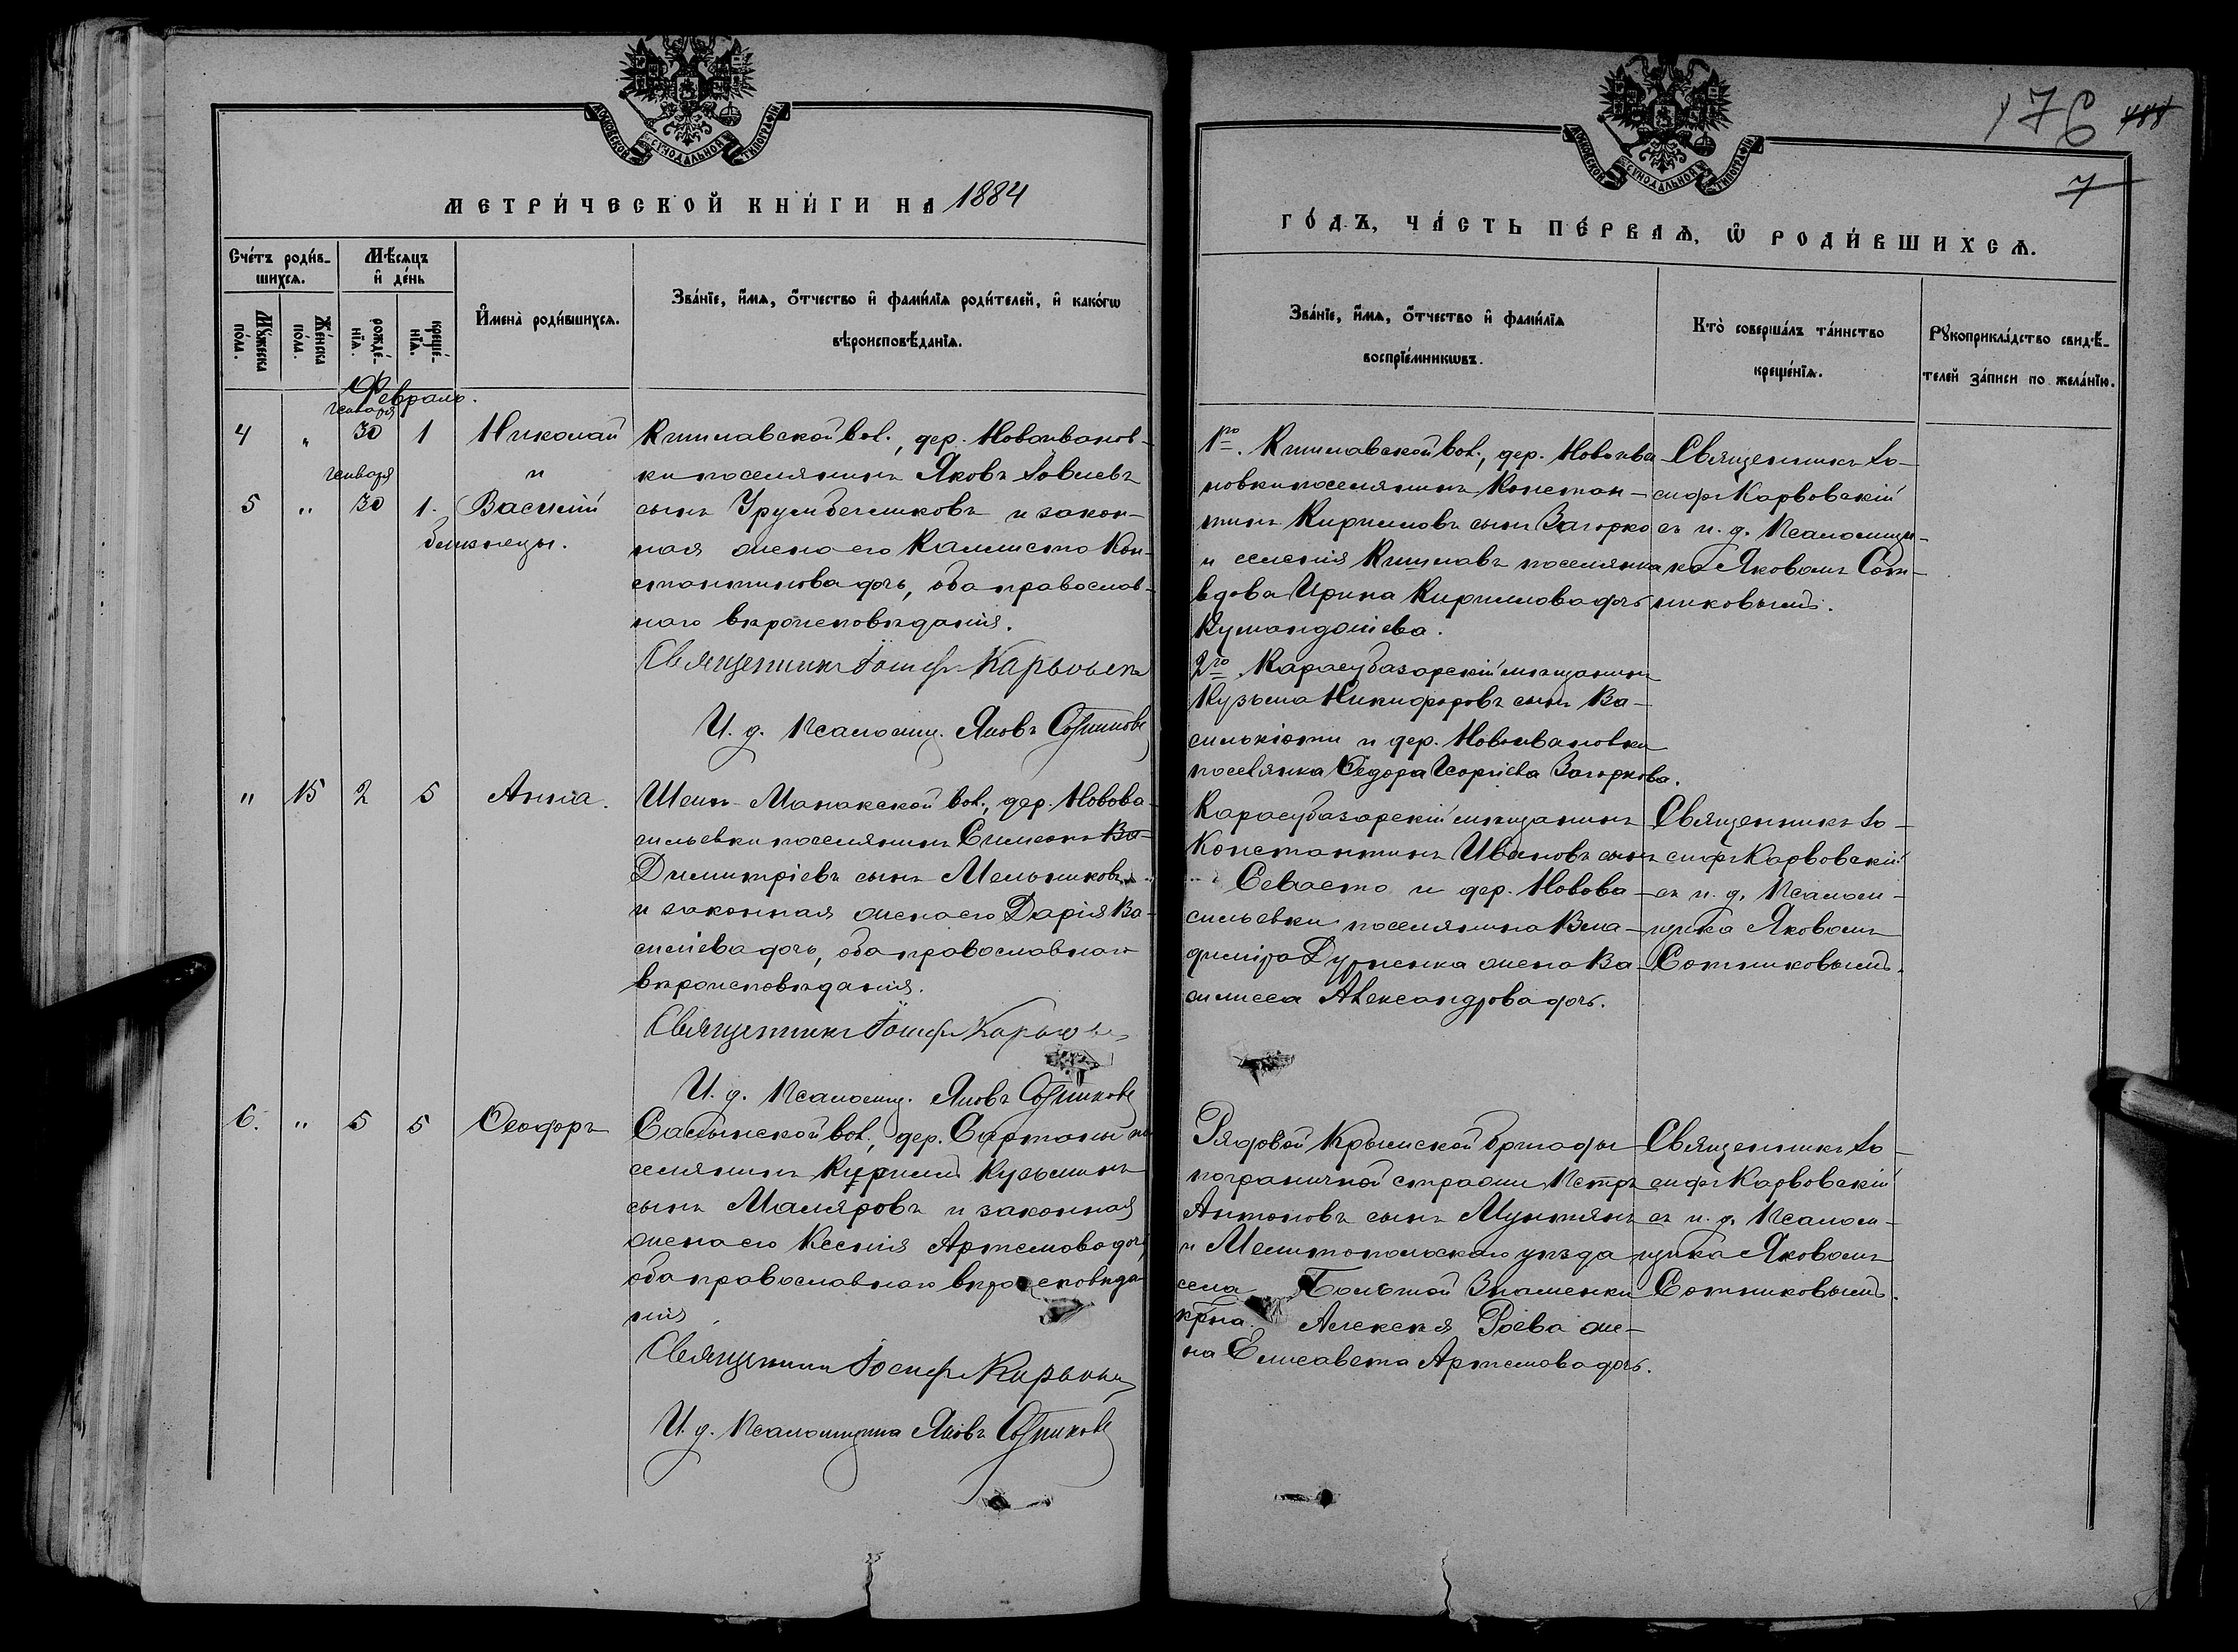 МОСКОВСКОЙ СѴНОДАЛЬНОЙ ТИПОГРАФІИ
МЕТРИ́ЧЕСКОЙ КНИ́ГИ НА 1884
Сче́тъ роди́в-
шихсѧ.
Мѣ́сѧцъ
и҆ де́нь
Мꙋ́жеска
по́ла.
Же́нска
по́ла.
рожде́-
нїѧ.
креще́-
нїѧ.
И҆мена̀ роди́вшихсѧ.
Зва́нїе, и҆́мѧ, ѻ҆́тчество и҆ фами́лїѧ роди́телей, и҆ како́гѡ
вѣроисповѣ́данїѧ.
Февраль.
Генваря
4 " 30 1 Николай
Генваря и
5 " 30 1. Василий
близнецы.
Кишлавской вол., дер. Новоиванов-
ки поселянинъ Яковъ Іовлевъ
сынъ Урумбешликовъ и закон-
ная жена его Каллиста Кон-
стантинова дочь, оба православ-
наго вѣроисповѣданія.
Священникъ Іосифъ
И. д. Псаломщ. Яковъ Сотников
" 15 2 5 Анна.
Шеих-Монакской вол., дер. Новова-
сильевки поселянинъ Симеонъ Ва-
Димитріевъ сынъ Мельниковъ
и законная жена его Дарія Ва-
силіева дочь, оба православнаго
вѣроисповѣданія.
Священникъ Іосифъ
И. д. Псаломщ. Яковъ Сотников
6. " 5 5 Ѳеодоръ
Салынской вол., дер. Сартаны по-
селянинъ Кириллъ Кузьминъ
сынъ Маляровъ и законная
жена его Ксенія Артемова дочь,
оба православнаго вѣроисповѣда-
нія
Священникъ Іосифъ
И. д. Псаломщика Яковъ Сотников
МОСКОВСКОЙ СѴНОДАЛЬНОЙ ТИПОГРАФІИ
176 188
7
ГО́ДЪ, ЧА́СТЬ ПЕ́РВАѦ, Ѡ҆ РОДИ́ВШИХСѦ.
Зва́нїе, и҆́мѧ, ѻ҆́тчество и҆ фами́лїѧ
воспрїе́мникѡвъ.
Кто̀ соверша́лъ та́инство
креще́нїѧ.
Рꙋкоприкла́дство свидѣ́-
телей за́писи по жела́нїю.
1го. Кишлавской вол., дер. Новоива-
новки поселянинъ Констан-
тинъ Кирилловъ сынъ Загорко
и селенія Кишлавъ поселянка
вдова Ирина Кириллова дочь
Кумандошева.
2го. Карасубазарскій мѣщанинъ
Кузьма Никифоровъ сынъ Ва-
силькіоти и дер. Новоивановки
поселянка Ѳедора Георгіева Загоркова.
Священникъ Іо-
сифъ Карвовскій
съ и. д. Псаломщи-
ка Яковомъ Сот-
никовымъ.
Карасубазарскій мѣщанинъ
Константинъ Ивановъ сынъ
Севасто и дер. Новова-
сильевки поселянина Вла-
диміра жена Ва-
силисса Александрова дочь.
Священникъ Іо-
сифъ Карвовскій
съ и. д. Псалом-
щика Яковомъ
Сотниковымъ.
Рядовой Крымской бригады
пограничной стражи Петръ
Антоновъ сынъ Мунтянъ
и Мелитопольскаго уѣзда
села Большой Знаменки
крна. Алексѣя Роева же-
на Елисавета Артемова дочь.
Священникъ Іо-
сифъ Карвовскій
съ и. д. Псалом-
щика Яковомъ
Сотниковымъ.